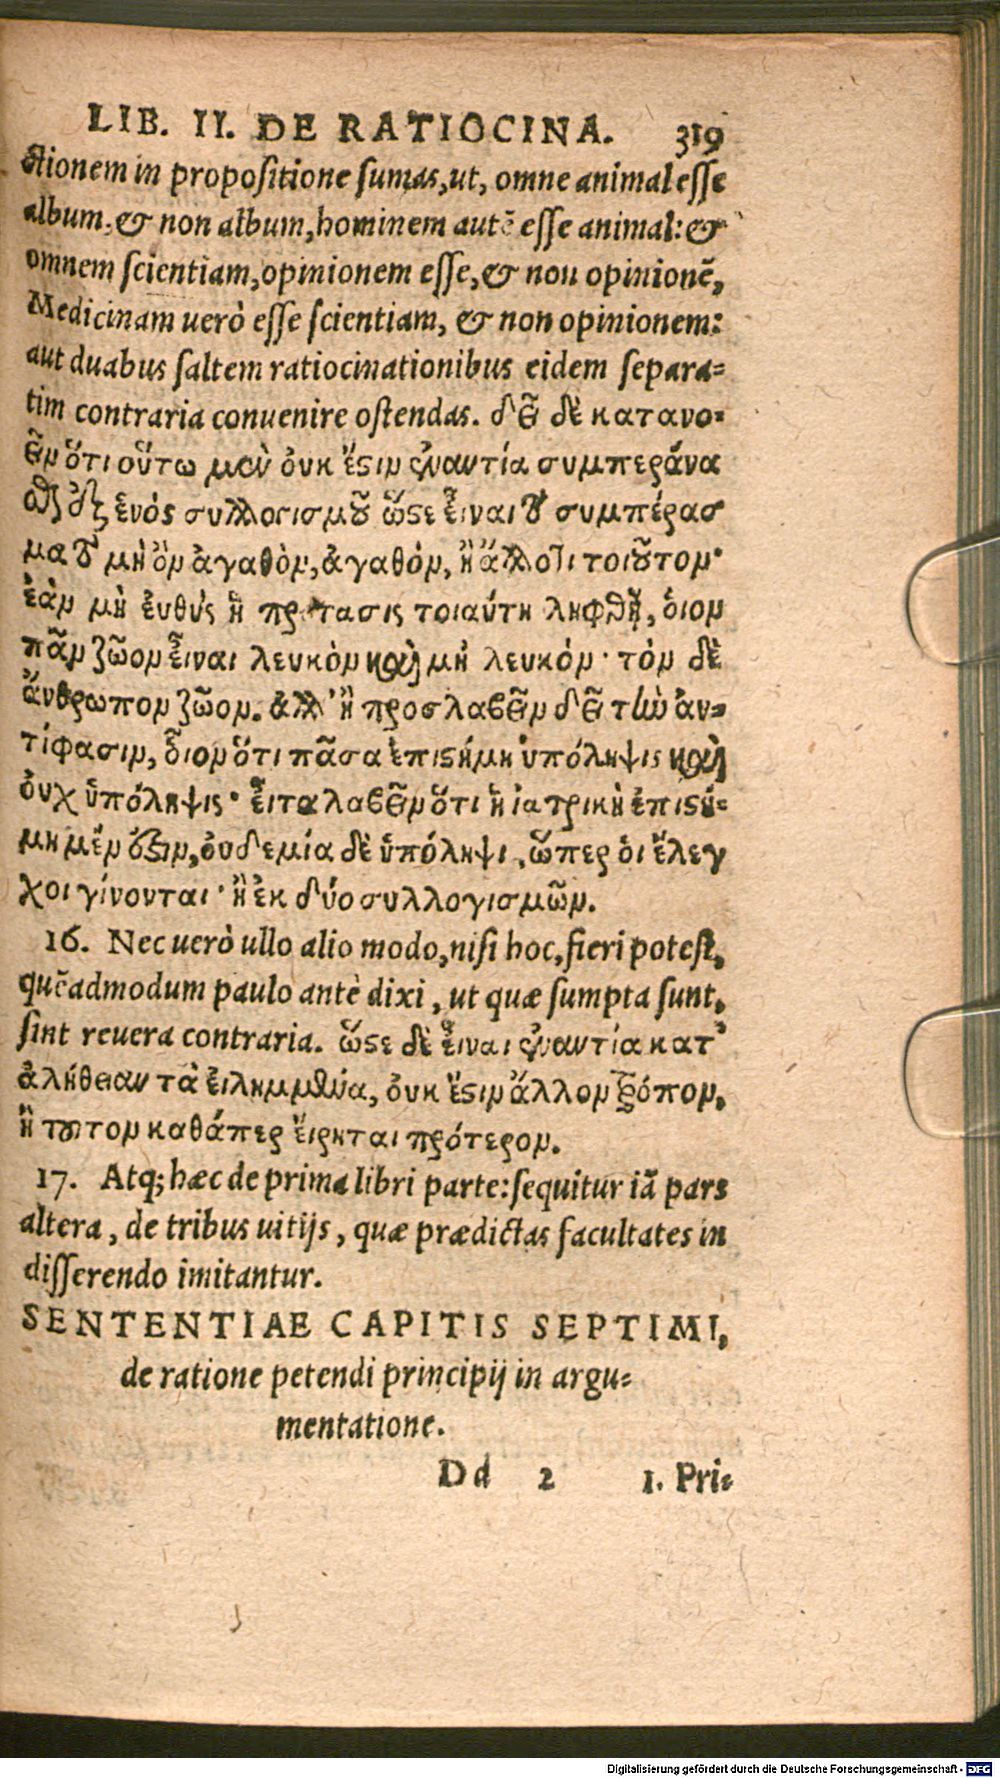 LIB. II. DE RATIOCINA. 319
ctionem in propositione sumas, ut, omne animal esse
album, & non album, hominem autē esse animal: &
omnem scientiam, opinionem esse, & non opinionē,
Medicinam uerò esse scientiam, & non opinionem:
aut duabus saltem ratiocinationibus eidem separa=
tim contraria conuenire ostendas. δεῖ δὲ κατανο=
εῖν ὅτι οὕτω μὲν οὐκ ἔστιν ἐναντία συμπεράνα
σθαι δι' ἑνός συλλογισμοῦ ὥστε εἶναι τὸ συμπέρασ
μα τὸ μὴ ὂν ἀγαθὸν, ἀγαθόν, ἢ ἄλλο τι τοιοῦτον·
ἐὰν μὴ εὐθὺς ἡ πρότασις τοιαύτη ληφθῇ, ὁιον
πᾶν ζῶον εἶναι λευκὸν καὶ μὴ λευκόν· τὸν δὲ
ἄνθρωπον ζῶον. ἀλλ' ἢ προσλαβεῖν δεῖ τὴν ἀν=
τίφασιν, ὁιον ὅτι πᾶσα ἐπιστήμη ὑπόληψις καὶ
οὐχ ὑπόληψις· εἶτα λαβεῖν ὅτι ἡ ἰατρικὴ ἐπιστή=
μη μέν ἐστιν, οὐδεμία δὲ ὑπόληψι, ὥπερ ὁι ἔλεγ
χοι γίνονται· ἢ ἐκ δύο συλλογισμῶν.
16. Nec uerò ullo alio modo, nisi hoc, fieri potest,
quēadmodum paulo antè dixi, ut quæ sumpta sunt,
sint reuera contraria. ὥστε δὲ εἶναι ἐναντία κατ'
ἀλήθειαν τὰ εἰλημμένα, οὐκ ἔστιν ἄλλον τρόπον,
ἢ τοῦτον καθάπερ εἴρηται πρότερον.
17. Atq; hæc de prima libri parte: sequitur iā pars
altera, de tribus uitijs, quæ prædictas facultates in
disserendo imitantur.
SENTENTIAE CAPITIS SEPTIMI,
de ratione petendi principij in argu=
mentatione.
Dd 2 1. Pri=
Digitalisierung gefördert durch die Deutsche Forschungsgemeinschaft - DFG